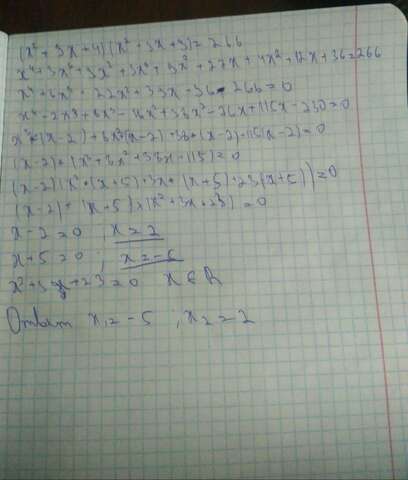 (x² + 3x + 4)(x² + 3x + 9) = 266
x⁴ + 3x³ + 9x² + 3x³ + 9x² + 27x + 4x² + 12x + 36 = 266
x⁴ + 6x³ + 22x² + 39x + 36 - 266 = 0
x⁴ - 2x³ + 8x³ - 16x² + 38x² - 76x + 115x - 230 = 0
x³ * (x - 2) + 8x²(x - 2) + 38x(x - 2) + 115(x - 2) = 0
(x - 2) * (x³ + 8x² + 38x + 115) = 0
(x - 2)(x² * (x + 5) + 3x * (x + 5) + 23(x + 5)) = 0
(x - 2) * (x + 5) * (x² + 3x + 23) = 0
x - 2 = 0 ; x = 2
x + 5 = 0 ; x = -5
x² + 3x + 23 = 0 x ∈ R
Ответ x₁ = -5 ; x₂ = 2